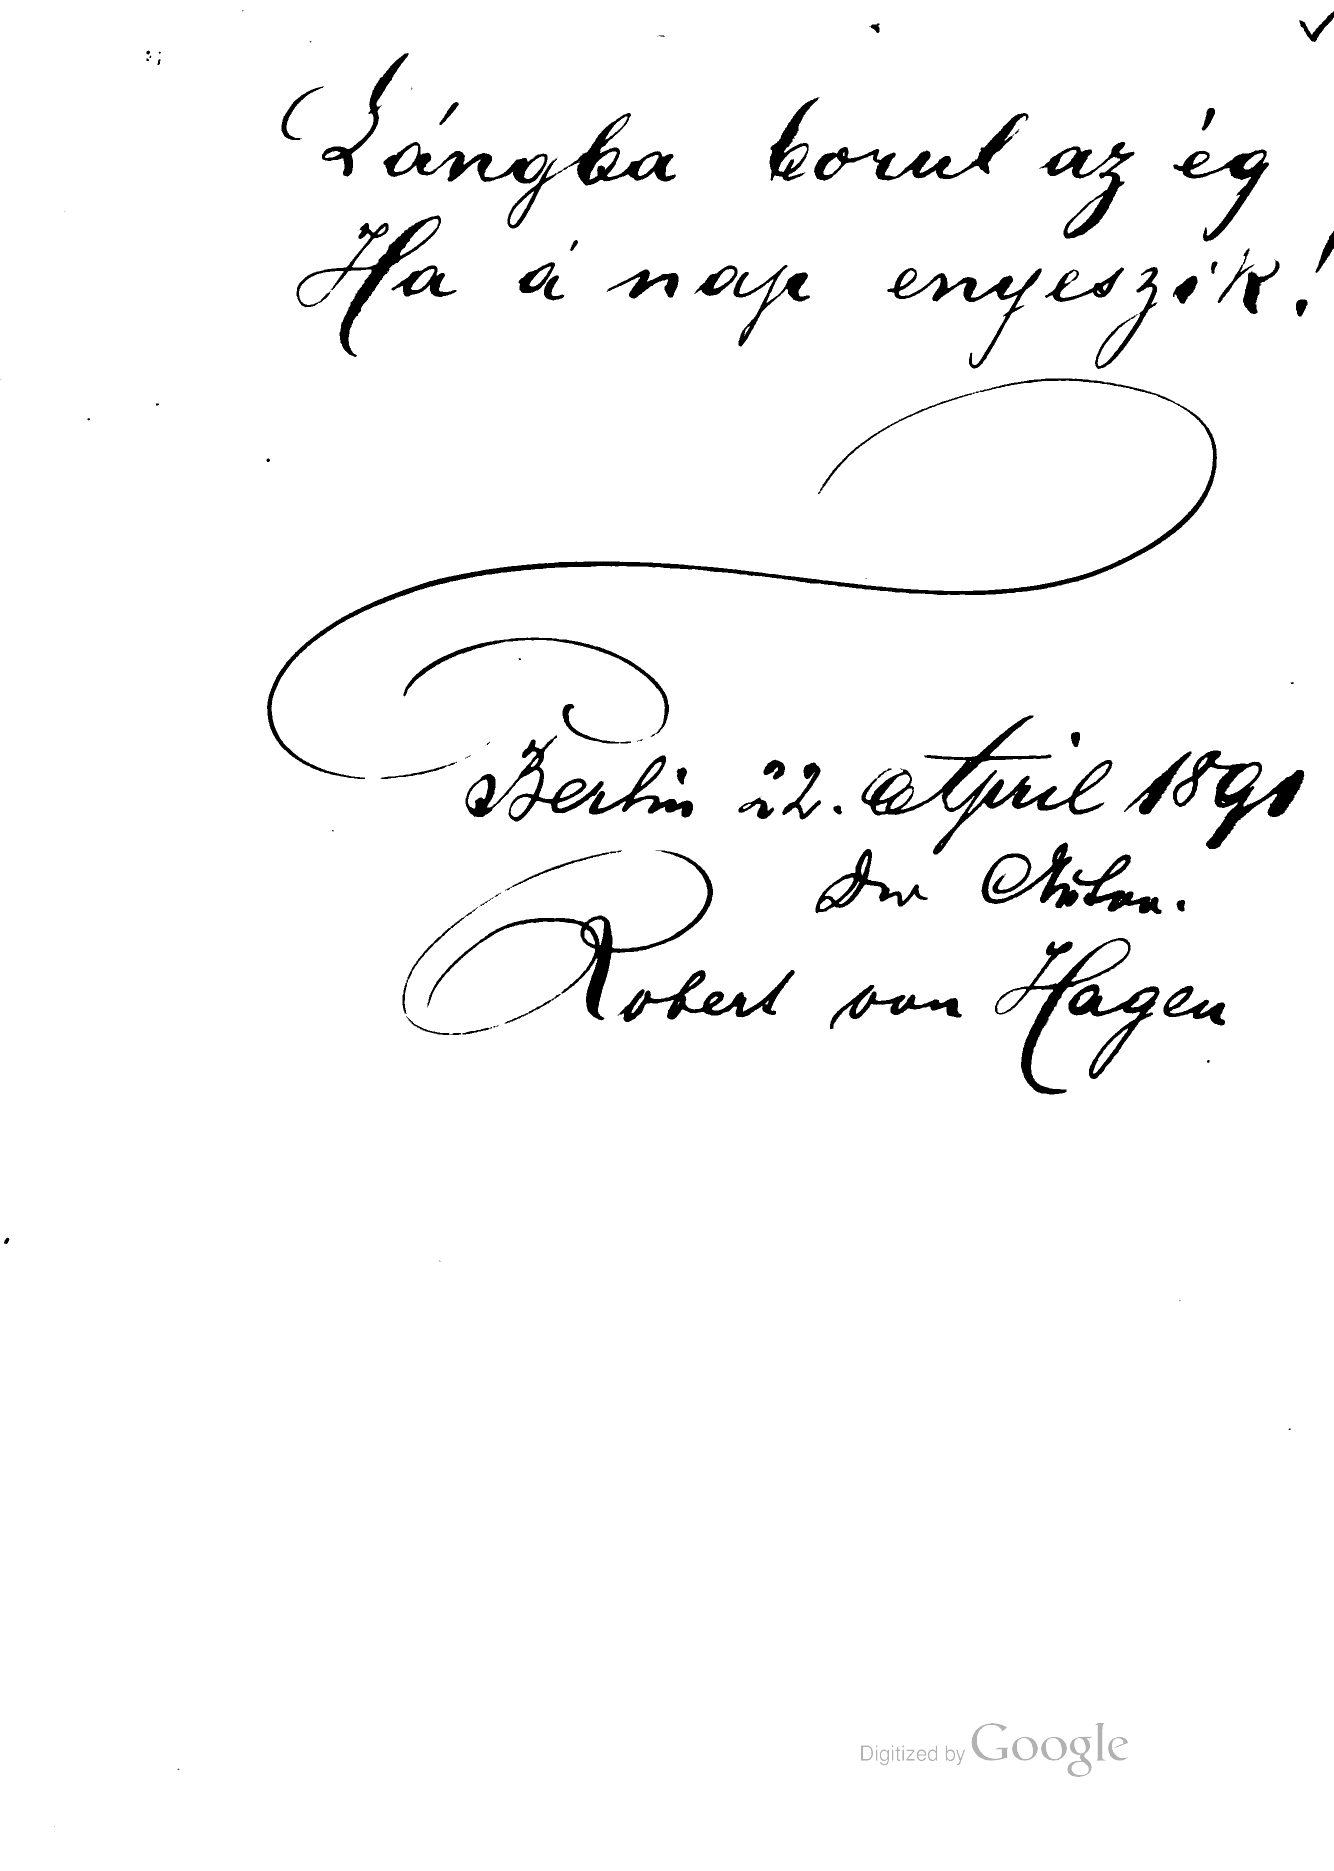 Lángba borul az ég
Ha á nap enyeszik!
Berlin 22. April 1891
Der Autor.
Robert von Hagen
Digitized by Google